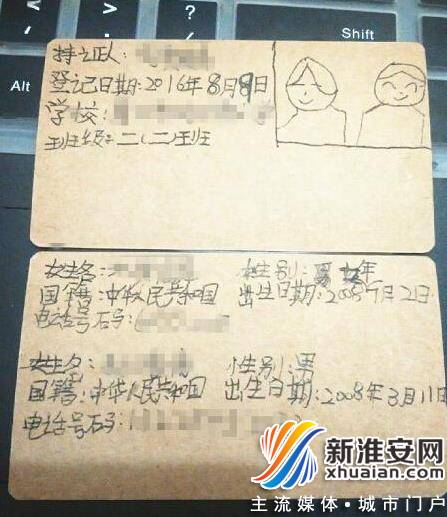 Shift
Alt
Ctrl
持证人:
登记日期:2016年8月9日
学校:
班级:二(二)班
姓名: 性别: 女
国籍:中华人民共和国 出生日期:2008年7月21日
电话号码:
姓名: 性别:男
国籍:中华人民共和国 出生日期:2008年3月11日
电话号码:
新淮安网
xhuaian.com
主流媒体·城市门户